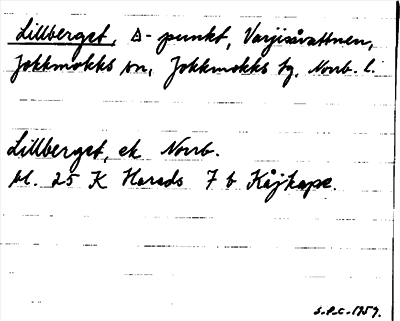 Lillberget, Δ-punkt, Varjisåvattnen,
Jokkmokks sn, Jokkmokks tg, Norrb. l.
Lillberget, ek Norrb.
bl. 25 K Harads 7 b Kåjkape.
S.P.C. 1959.